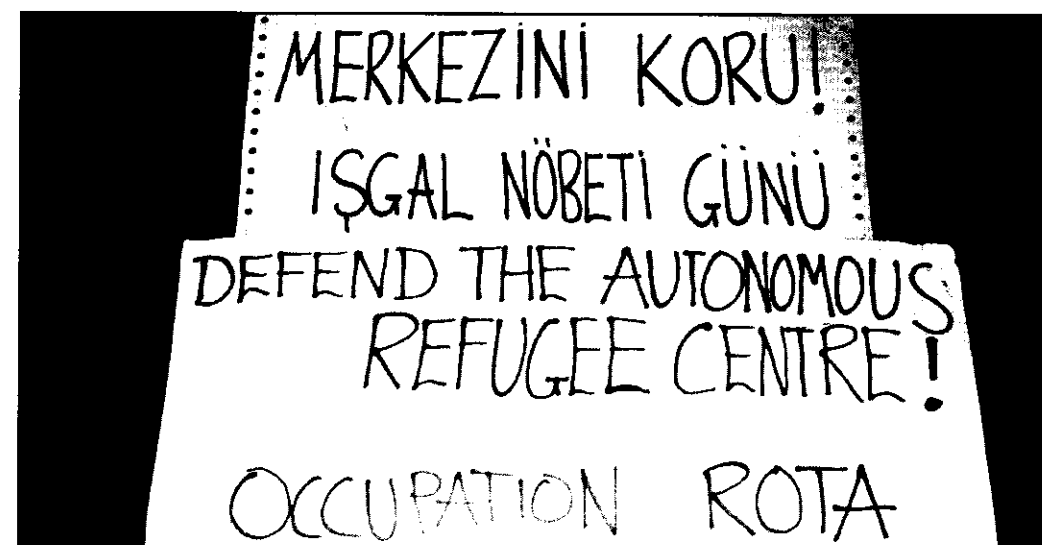 MERKEZİNİ KORU!
IŞGAL NÖBETİ GÜNÜ
DEFEND THE AUTONOMOUS
REFUGEE CENTRE!
OCCUPATION ROTA